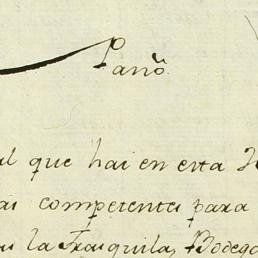 Pano
al que hai en esta
competente para
la Franquila, Bodega